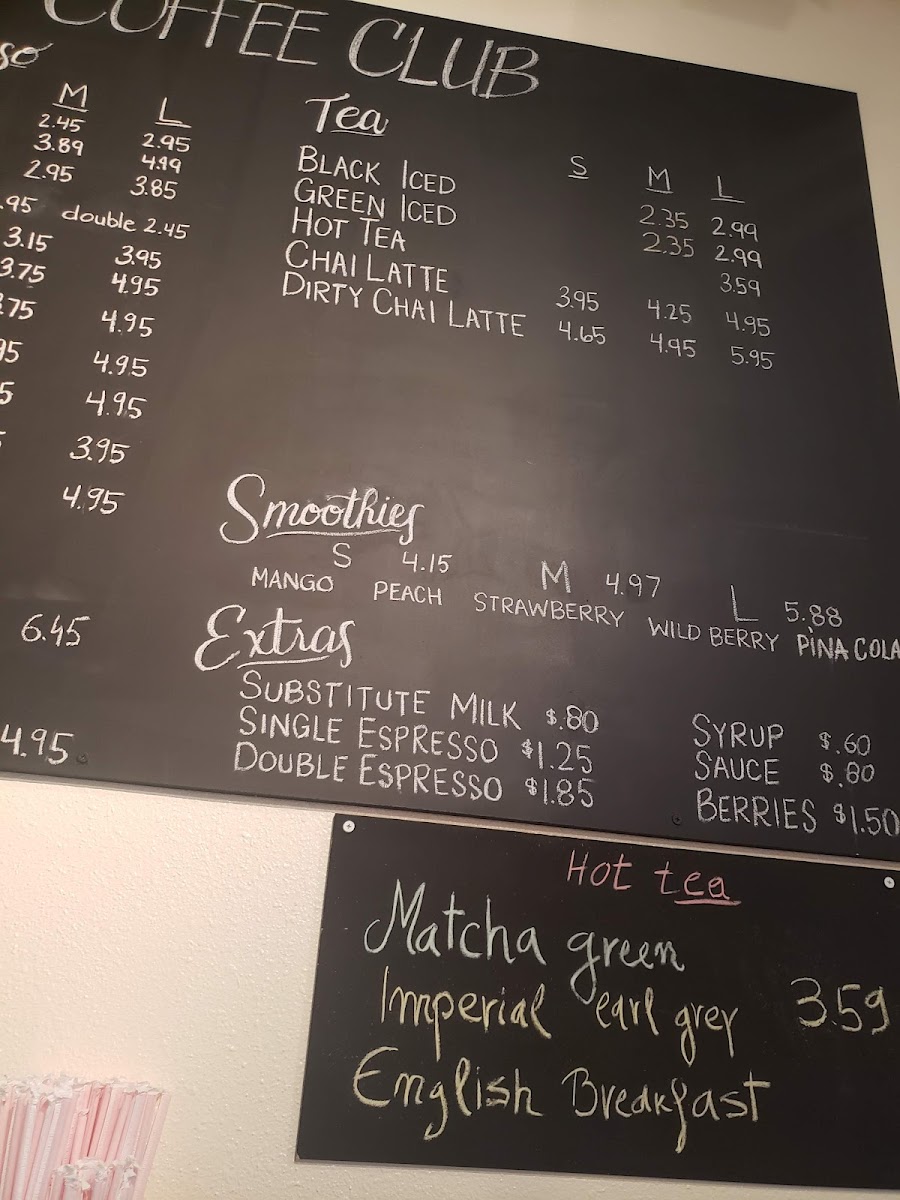 COFFEE CLUB
M L
2.45 2.95
3.89 4.49
2.95 3.85
.95 double 2.45
3.15 3.95
3.75 4.95
.75 4.95
95 4.95
5 4.95
3.95
4.95
6.45
4.95
Tea
S M L
BLACK ICED 2.35 2.99
GREEN ICED 2.35 2.99
HOT TEA 3.59
CHAI LATTE 3.95 4.25 4.95
DIRTY CHAI LATTE 4.65 4.95 5.95
Smoothies
S 4.15 M 4.97 L 5.88
MANGO PEACH STRAWBERRY WILD BERRY PINA COLA
Extras
SUBSTITUTE MILK $.80 SYRUP $.60
SINGLE ESPRESSO $1.25 SAUCE $.80
DOUBLE ESPRESSO $1.85 BERRIES $1.50
Hot tea
Matcha green
Imperial earl grey 3.59
English Breakfast